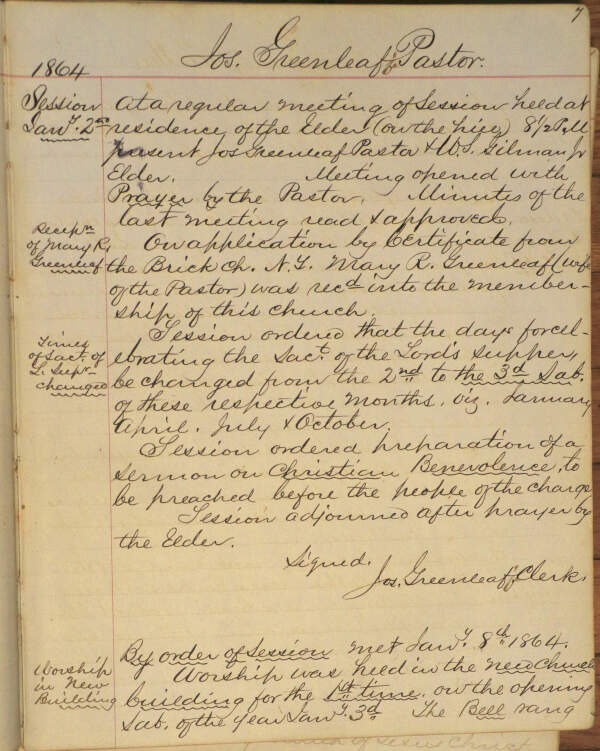 7
Jos. Greenleaf Jr Pastor.
1864
Session
Jany. 2nd
At a regular meeting of Session held at
residence of the Elder (on the hill) 8 1/2 P.M
present Jos Greenleaf Pastor & W. S. Gilman Jr
Elder. Meeting opened with
Prayer by the Pastor. Minutes of the
last meeting read & approved.
Recepn
of Mary R,
Greenleaf
On application by Certificate from
the Brick Ch. N.Y. Mary R. Greenleaf (wife
of the Pastor) was recd into the member-
ship of this church.
Times
of Sact. of
L. Supr
changed
Session ordered that the days for cel-
ebrating the Sact. of the Lord's Supper,
be changed from the 2nd to the 3d Sab.
of these respective months. viz. January
April. July & October.
Session ordered preparation of a
sermon on Christian Benevolence, to
be preached before the people of the charge
Session adjourned after prayer by
the Elder.
Signed.
Jos. Greenleaf Jr Clerk.
By order of Session met Jany. 8th 1864.
Worship
in New
Building
Worship was held in the new Church
building for the 1st time, on the opening
Sab. of the year Jany. 3d The Bell rang